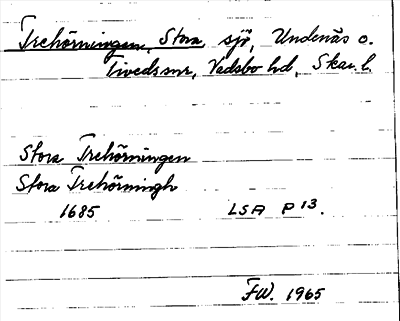 Trehörningen, Stora, sjö, Undenäs o.
Tiveds snr, Vadsbo hd, Skar. l.
Stora Trehörningen
Stora Trehörningh
1685 LSA P 13.
FW. 1965